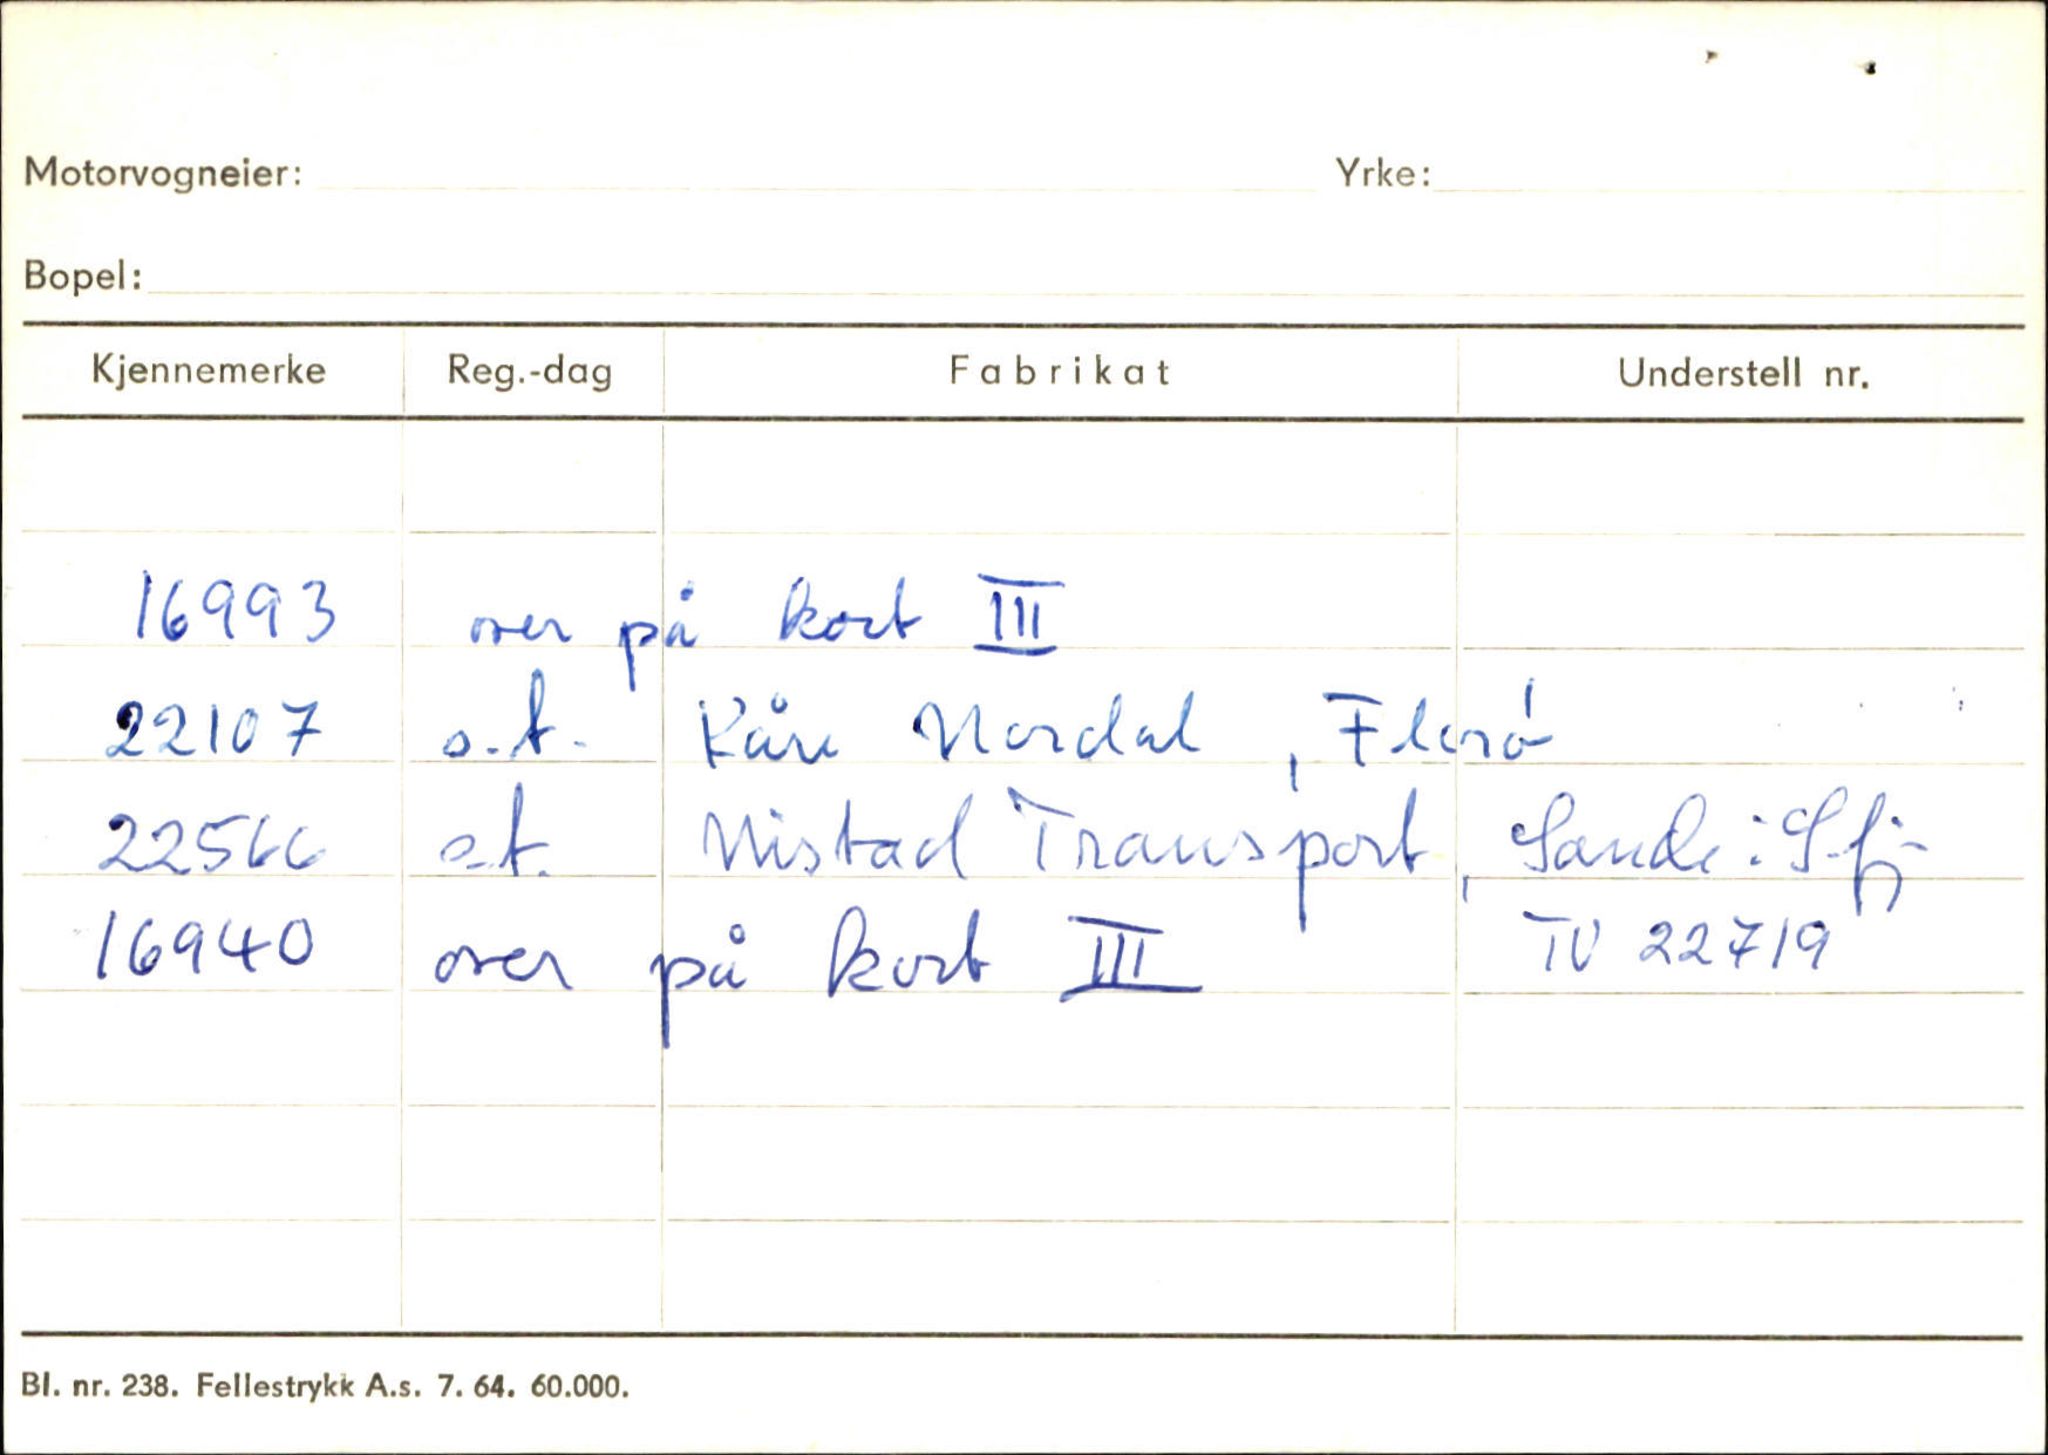 Motorvogneier: Yrke:
Bopel:
Kjennemerke Reg.-dag Fabrikat Understell nr.
16993 over på kort III
22107 o.t. Kåre Nordal, Florø
22566 o.t. Nistad Transport, Sande i S.fj
16940 over på kort III TV 22719
Bl. nr. 238. Fellestrykk A.s. 7. 64. 60.000.